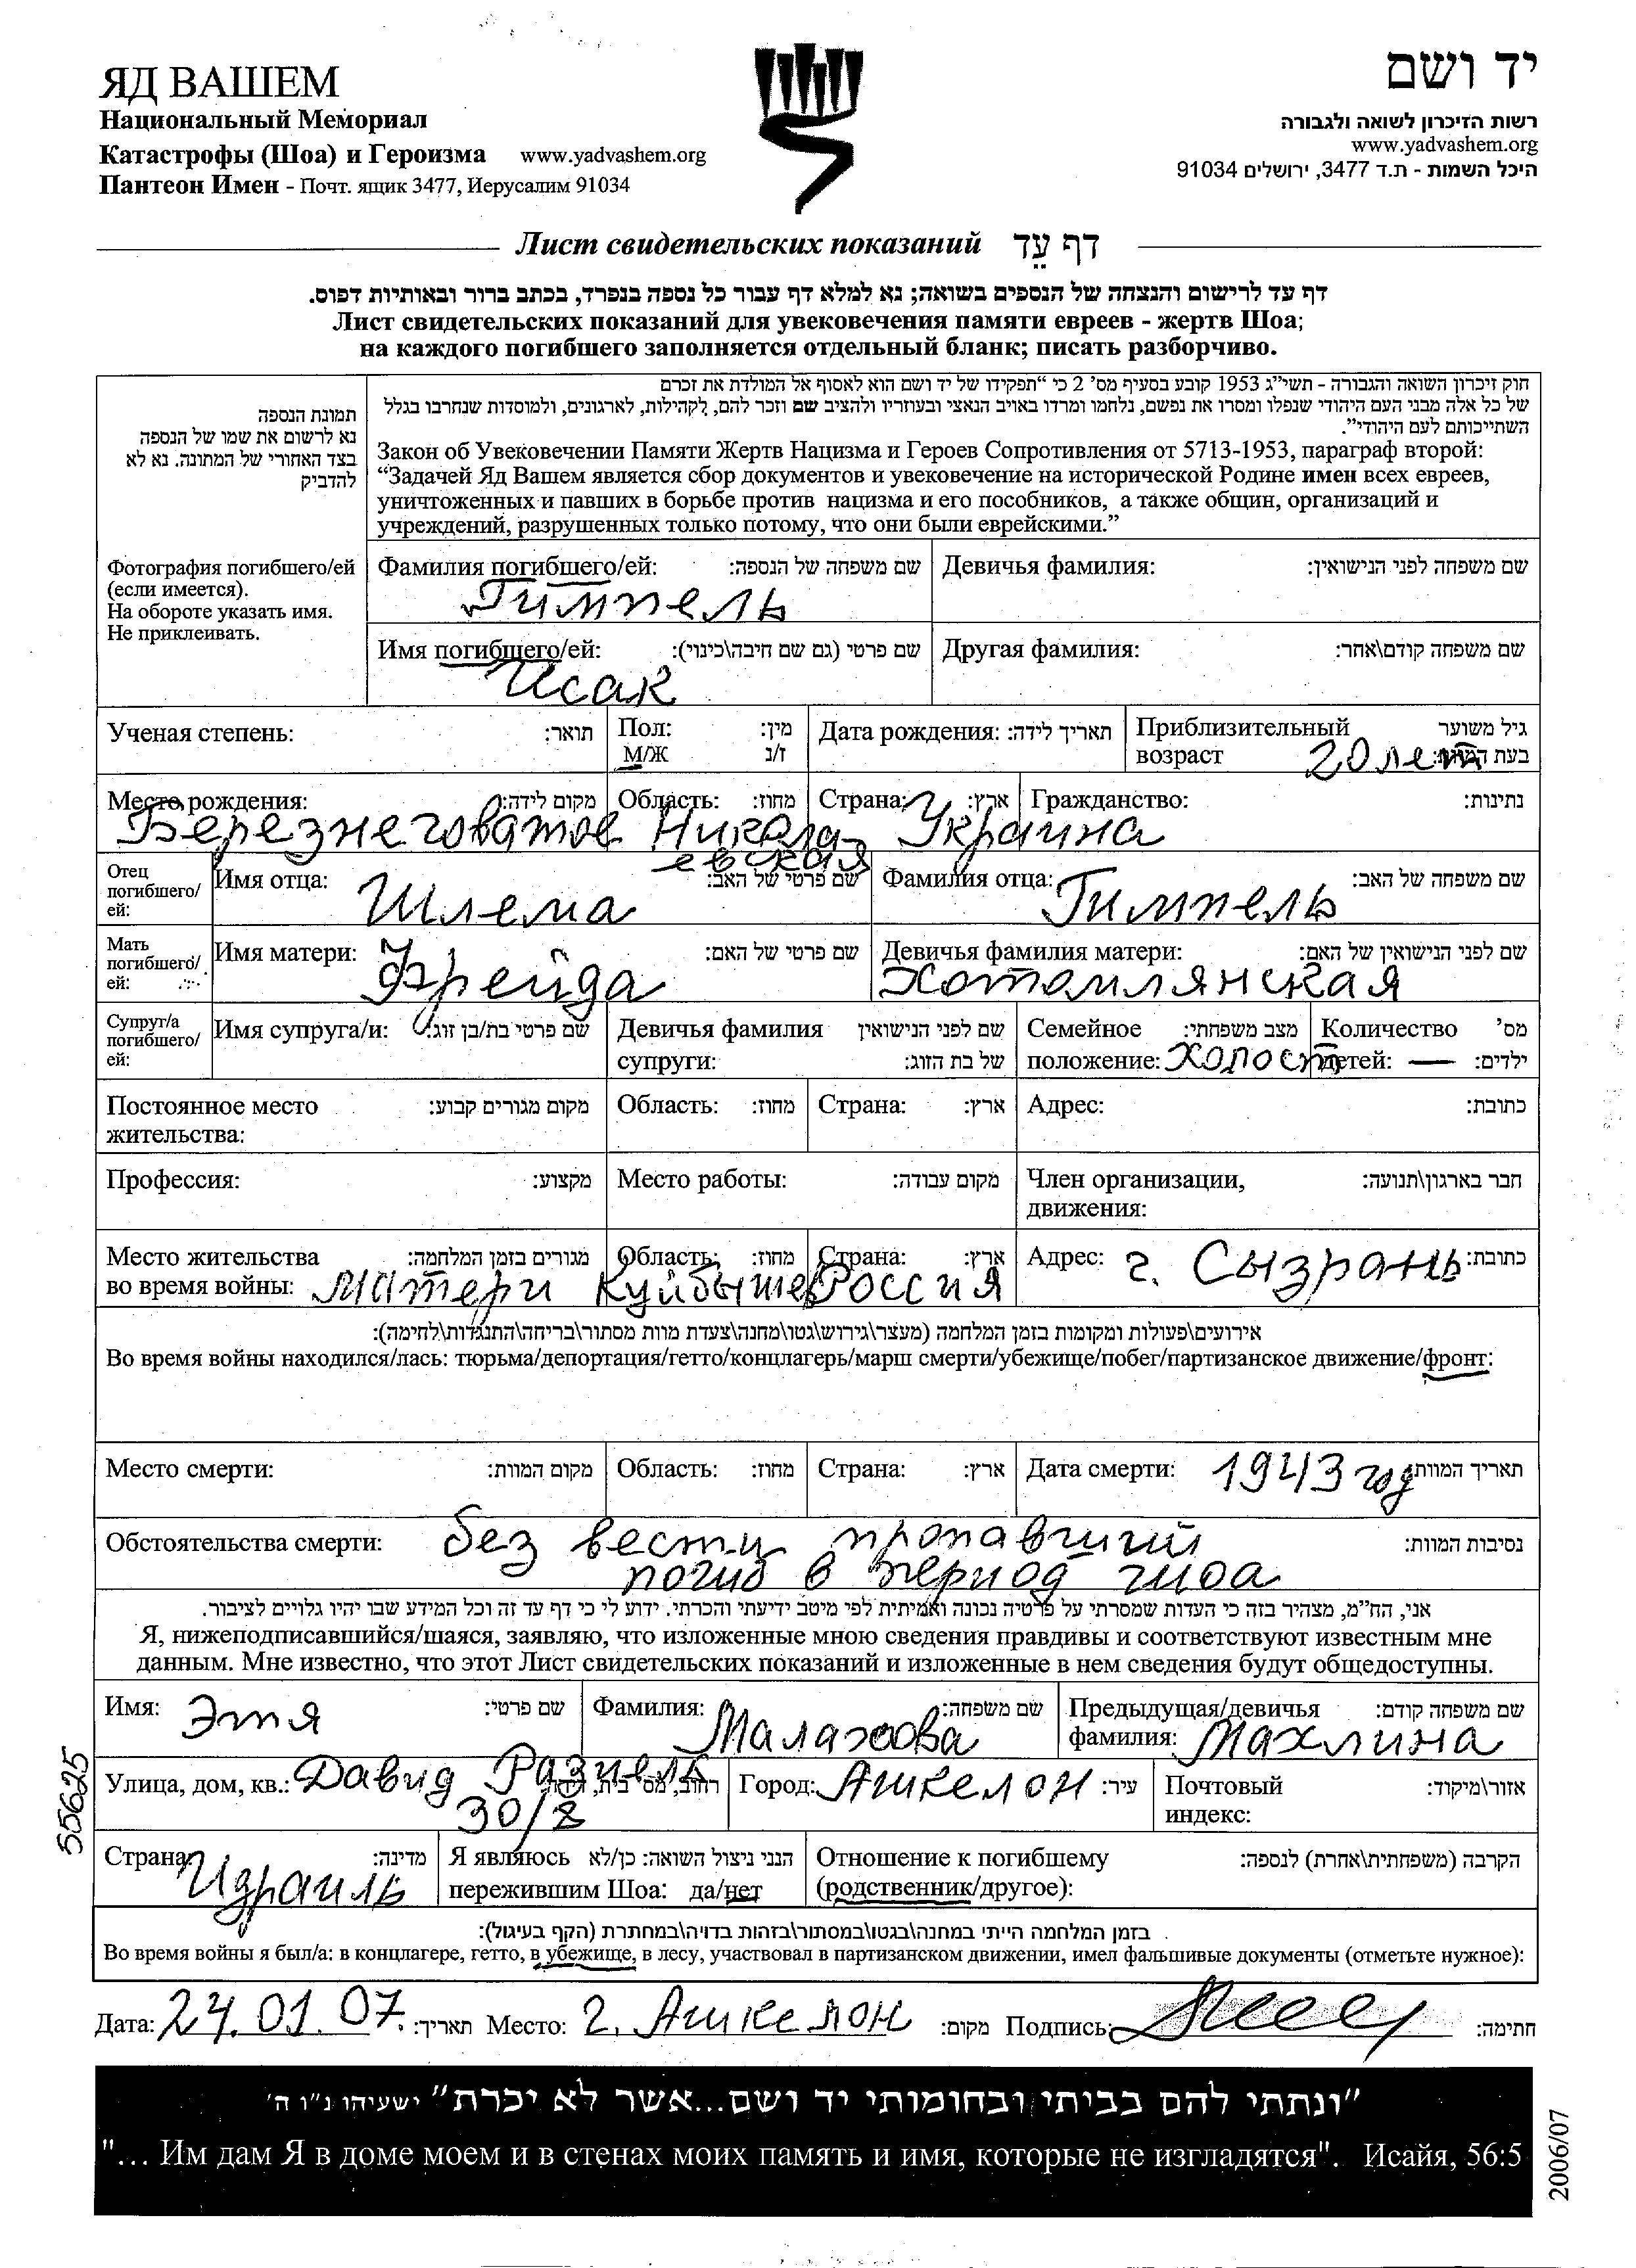 ЯД ВАШЕМ
Национальный Мемориал
Катастрофы (Шоа) и Героизма www.yadvashem.org
Пантеон Имен - Почт. ящик 3477, Иерусалим 91034
יד ושם
רשות הזיכרון לשואה ולגבורה
www.yadvashem.org
היכל השמות - ת.ד 3477, ירושלים 91034
Лист свидетельских показаний דף עֵד
דף עד לרישום והנצחה של הנספים בשואה; נא למלא דף עבור כל נספה בנפרד, בכתב ברור ובאותיות דפוס.
Лист свидетельских показаний для увековечения памяти евреев - жертв Шоа;
на каждого погибшего заполняется отдельный бланк; писать разборчиво.
תמונת הנספה
נא לרשום את שמו של הנספה
בצד האחורי של התמונה. נא לא
להדביק
Фотография погибшего/ей
(если имеется).
На обороте указать имя.
Не приклеивать.
חוק זיכרון השואה והגבורה - תשי"ג 1953 קובע בסעיף מס' 2 כי "תפקידו של יד ושם הוא לאסוף אל המולדת את זכרם
של כל אלה מבני העם היהודי שנפלו ומסרו את נפשם, נלחמו ומרדו באויב הנאצי ובעוזריו ולהציב שם וזכר להם, לקהילות, לארגונים, ולמוסדות שנחרבו בגלל
השתייכותם לעם היהודי".
Закон об Увековечении Памяти Жертв Нацизма и Героев Сопротивления от 5713-1953, параграф второй:
"Задачей Яд Вашем является сбор документов и увековечение на исторической Родине имен всех евреев,
уничтоженных и павших в борьбе против нацизма и его пособников, а также общин, организаций и
учреждений, разрушенных только потому, что они были еврейскими."
Фамилия погибшего/ей: שם משפחה של הנספה: Девичья фамилия: שם משפחה לפני הנישואין:
Гимпель
Имя погибшего/ей: שם פרטי (גם שם חיבה\כינוי): Другая фамилия: שם משפחה קודם\אחר:
Исак
Ученая степень: תואר: Пол: מין: Дата рождения: תאריך לידה: Приблизительный גיל משוער
М/Ж ז/נ возраст 20 лет בעת המוות:
Место рождения: מקום לידה: Область: מחוז: Страна: ארץ: Гражданство: נתינות:
Березнеговатое Никола- Украина
евская
Отец
погибшего/
ей:
Имя отца: Шлема שם פרטי של האב: Фамилия отца: Гимпель שם משפחה של האב:
Мать
погибшего/
ей:
Имя матери: Фрейда שם פרטי של האם: Девичья фамилия матери: שם לפני הנישואין של האם:
Хотомлянская
Супруг/а
погибшего/
ей:
Имя супруга/и: שם פרטי בת/בן זוג: Девичья фамилия שם לפני הנישואין Семейное מצב משפחתי: Количество מס'
супруги: של בת הזוג: положение: холост детей: — ילדים:
Постоянное место מקום מגורים קבוע: Область: מחוז: Страна: ארץ: Адрес: כתובת:
жительства:
Профессия: מקצוע: Место работы: מקום עבודה: Член организации, חבר בארגון\תנועה:
движения:
Место жительства מגורים בזמן המלחמה: Область: מחוז: Страна: ארץ: Адрес: г. Сызрань כתובת:
во время войны: Матери Куйбышев Россия
אירועים\פעולות ומקומות בזמן המלחמה (מעצר\גירוש\גטו\מחנה\צעדת מוות מסתור\בריחה\התנגדות\לחימה):
Во время войны находился/лась: тюрьма/депортация/гетто/концлагерь/марш смерти/убежище/побег/партизанское движение/фронт:
Место смерти: מקום המוות: Область: מחוז: Страна: ארץ: Дата смерти: 1943 год תאריך המוות:
Обстоятельства смерти: без вести пропавший נסיבות המוות:
погиб в период шоа
אני, הח"מ, מצהיר בזה כי העדות שמסרתי על פרטיה נכונה ואמיתית לפי מיטב ידיעתי והכרתי. ידוע לי כי דף עד זה וכל המידע שבו יהיו גלויים לציבור.
Я, нижеподписавшийся/шаяся, заявляю, что изложенные мною сведения правдивы и соответствуют известным мне
данным. Мне известно, что этот Лист свидетельских показаний и изложенные в нем сведения будут общедоступны.
Имя: Этя שם פרטי: Фамилия: שם משפחה: Предыдущая/девичья שם משפחה קודם:
Малахова фамилия: Махлина
Улица, дом, кв.: Давид Разиель רחוב, מס' בית, Город: Ашкелон עיר: Почтовый אזור\מיקוד:
30/8 индекс:
Страна: Израиль מדינה: Я являюсь הנני ניצול השואה: כן/לא Отношение к погибшему הקרבה (משפחתית\אחרת) לנספה:
пережившим Шоа: да/нет (родственник/другое):
בזמן המלחמה הייתי במחנה\בגטו\במסתור\בזהות בדויה\במחתרת (הקף בעיגול):
Во время войны я был/а: в концлагере, гетто, в убежище, в лесу, участвовал в партизанском движении, имел фальшивые документы (отметьте нужное):
Дата: 24.01.07. תאריך: Место: г. Ашкелон מקום: Подпись: חתימה:
"ונתתי להם בביתי ובחומותי יד ושם...אשר לא יכרת" ישעיהו נ"ו ה'
"... Им дам Я в доме моем и в стенах моих память и имя, которые не изгладятся". Исайя, 56:5
55625
2006/07